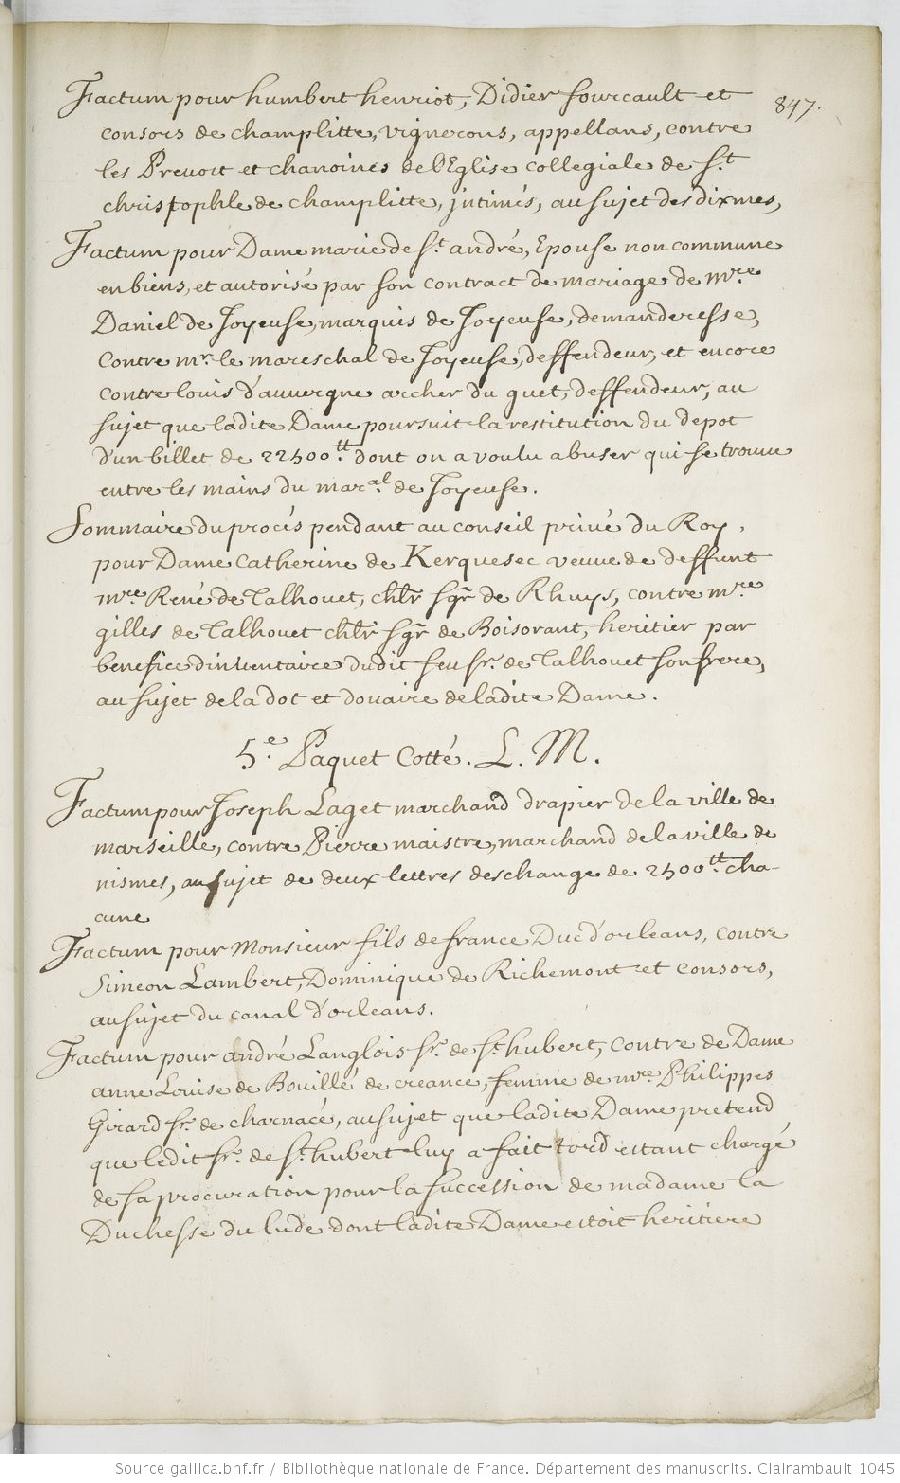 847.
Factum pour humbert henriot, Didier fourcault et
consors de champlitte, vignerons, appellans, contre
les Prevost et chanoines de l'Eglise collegiale de St
christophle de champlitte, intimés, au sujet des dixmes,
Factum pour Dame marie de St andré, Epouse non commune
en biens, et autorisé par son contract de mariage de mre
Daniel de Joyeuse, marquis de Joyeuse, demanderesse,
contre mr. le mareschal de Joyeuse, deffendeur, et encore
contre louis d'auvergne archer du guet, deffendeur, au
sujet que ladite Dame poursuit la restitution du depot
d'un billet de 22500tt. dont on a voulu abuser qui se trouve
entre les mains du maral. de Joyeuse.
Sommaire du procés pendant au conseil privé du Roy,
pour Dame Catherine de Kerquesec veuve de deffunt
mre René de Talhouet, chlr sgr de Rhuys, contre mre
gilles de Talhouet chlr sgr de Boisorant, heritier par
benefice d'inventaire dudit feu sr. de Talhouet son frere,
au sujet de la dot et douaire de ladite Dame.
5e. Paquet Cotté. L. M.
Factum pour Joseph Laget marchand drapier de la ville de
marseille, contre Pierre maistre, marchand de la ville de
nismes, au sujet de deux lettres deschange de 2500tt. cha-
cune
Factum pour Monsieur fils de france Duc d'orleans, contre
Simeon Lambert, Dominique de Richemont et consors,
au sujet du canal d'orleans.
Factum pour andré Langlois sr. de St hubert, contre de Dame
anne Louise de Bouillé de creance, femme de mre Philippes
Girard sr. de charnacé, au sujet que ladite Dame pretend
que ledit sr. de St hubert luy a fait tord estant chargé
de sa procuration pour la succession de madame la
Duchesse du lude dont ladite Dame estoit heritiere
Source gallica.bnf.fr / Bibliothèque nationale de France. Département des manuscrits. Clairambault 1045